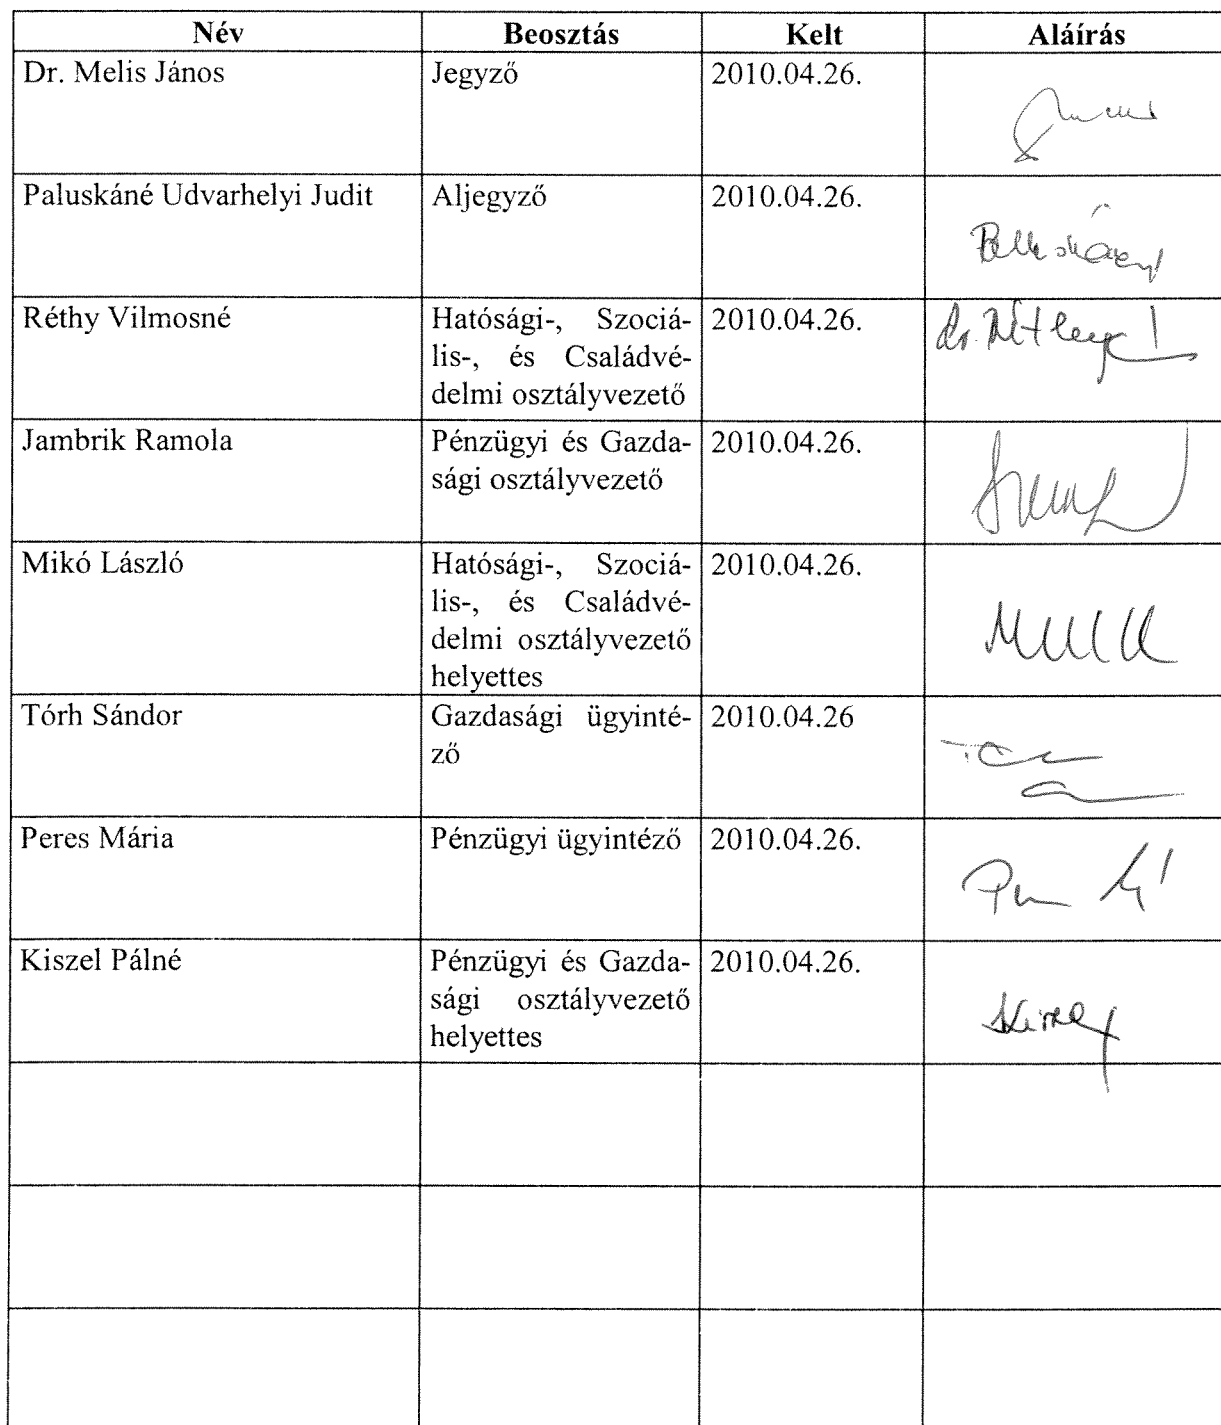 Név Beosztás Kelt Aláírás
Dr. Melis János Jegyző 2010.04.26.
Paluskáné Udvarhelyi Judit Aljegyző 2010.04.26.
Réthy Vilmosné Hatósági-, Szociá- 2010.04.26.
lis-, és Családvé-
delmi osztályvezető
Jambrik Ramola Pénzügyi és Gazda- 2010.04.26.
sági osztályvezető
Mikó László Hatósági-, Szociá- 2010.04.26.
lis-, és Családvé-
delmi osztályvezető
helyettes
Tórh Sándor Gazdasági ügyinté- 2010.04.26
ző
Peres Mária Pénzügyi ügyintéző 2010.04.26.
Kiszel Pálné Pénzügyi és Gazda- 2010.04.26.
sági osztályvezető
helyettes